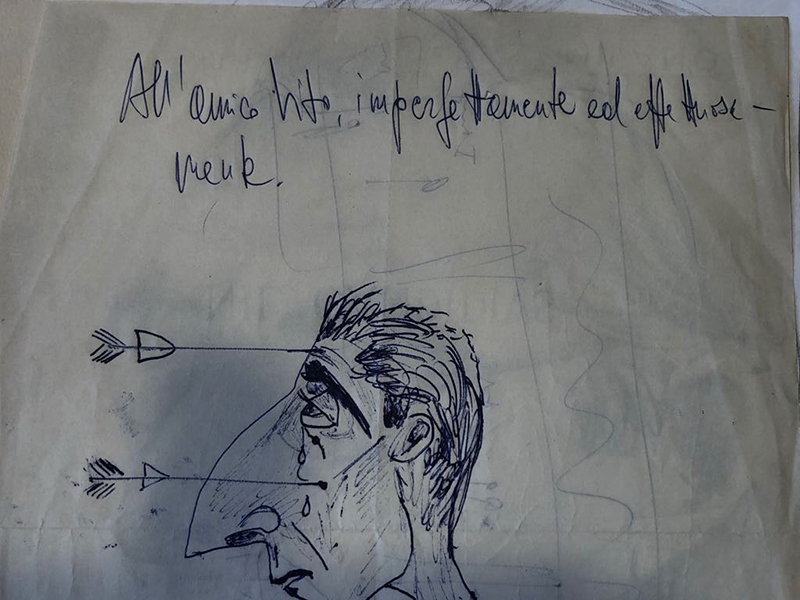 All'amico Tito, imperfettamente ed affettuosa-
mente.